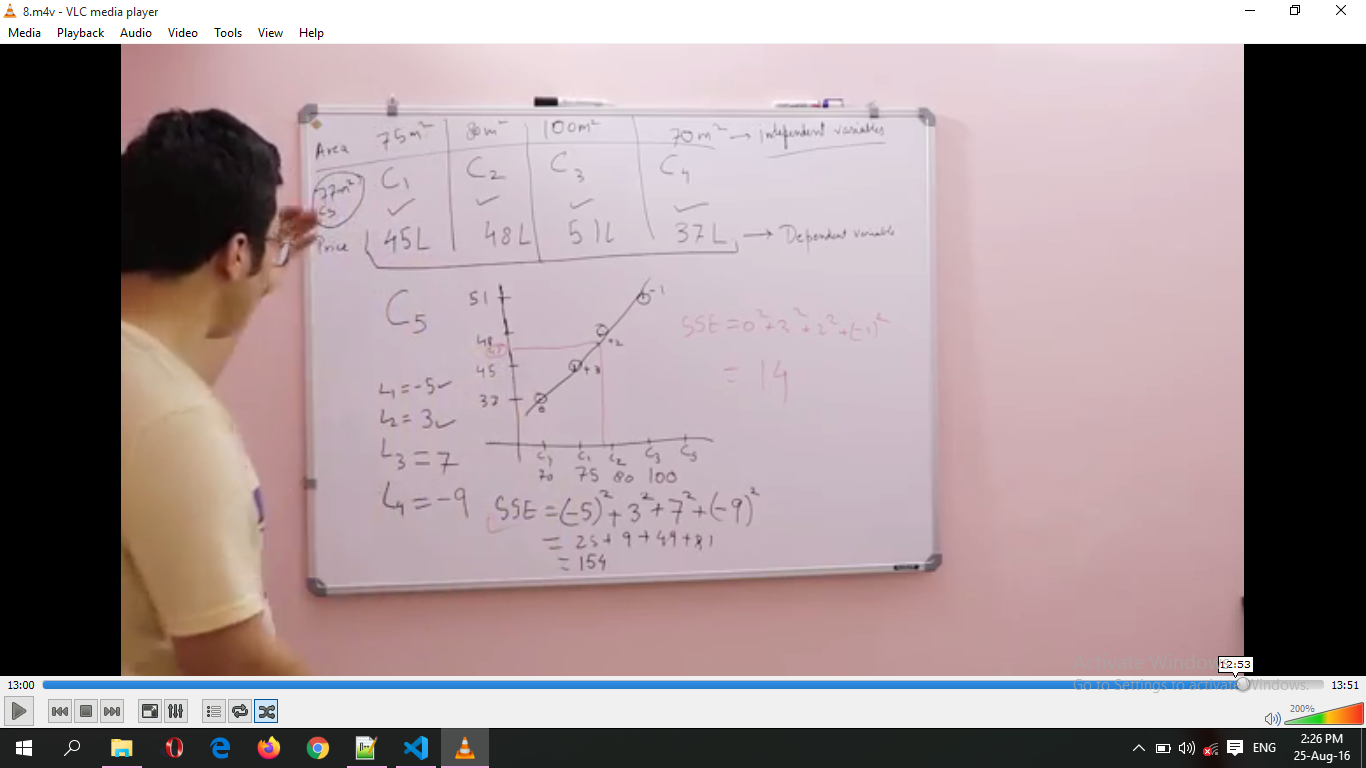 8.m4v - VLC media player
Media Playback Audio Video Tools View Help
Area 75m² 80m² 100m² 70m² → independent variables
77m² C₁ C₂ C₃ C₄
C₅ ✓ ✓ ✓ ✓
Price 45L 48L 51L 37L → Dependent variable
C₅
51 -1
48 +2
45 +3
37 0
C₄ C₁ C₂ C₃ C₅
70 75 80 100
L₁ = -5 ✓
L₂ = 3 ✓
L₃ = 7
L₄ = -9
SSE = 0² + 3² + 2² + (-1)²
= 14
SSE = (-5)² + 3² + 7² + (-9)²
= 25 + 9 + 49 + 81
= 154
Activate Windows
Go to Settings to activate Windows.
12:53
13:00 13:51
200%
ENG
2:26 PM
25-Aug-16